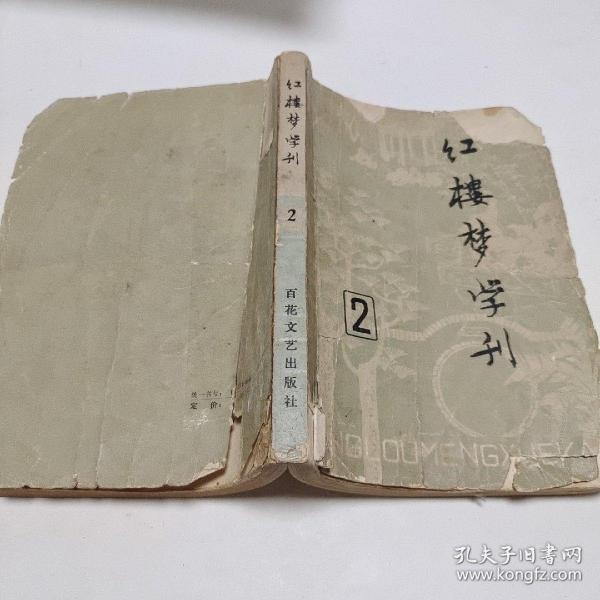 红楼梦学刊
2
百花文艺出版社
红楼梦学刊
2
NGLOUMENGXUEKAN
统一书号：
定价：
孔夫子旧书网
www.kongfz.com